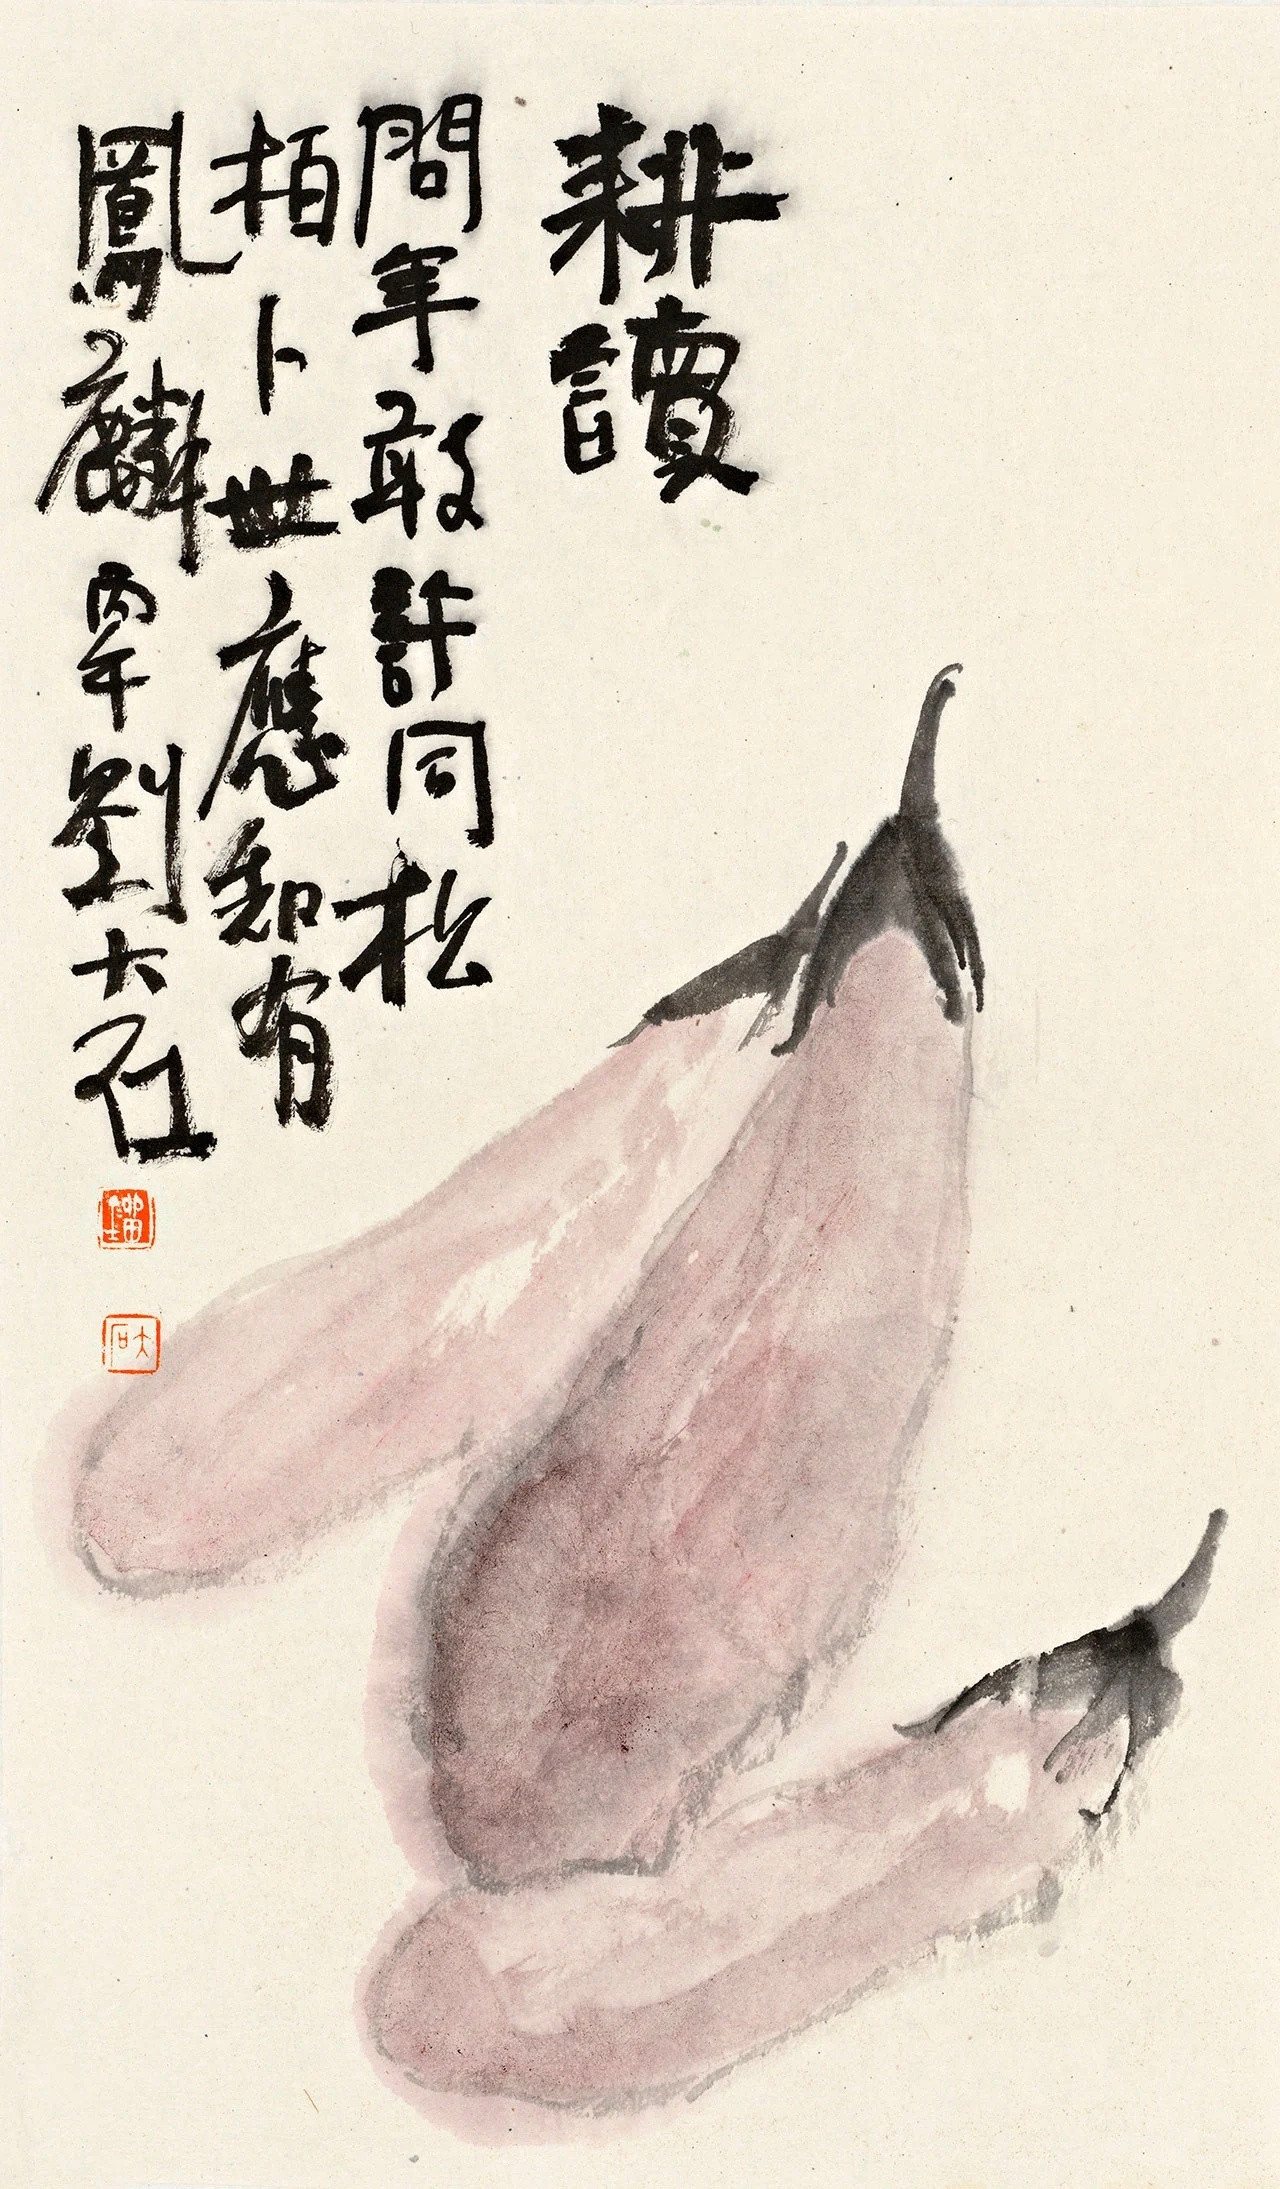 耕讀
問年敢許同松
栢卜世應知有
鳳麟丙午劉大石
大石